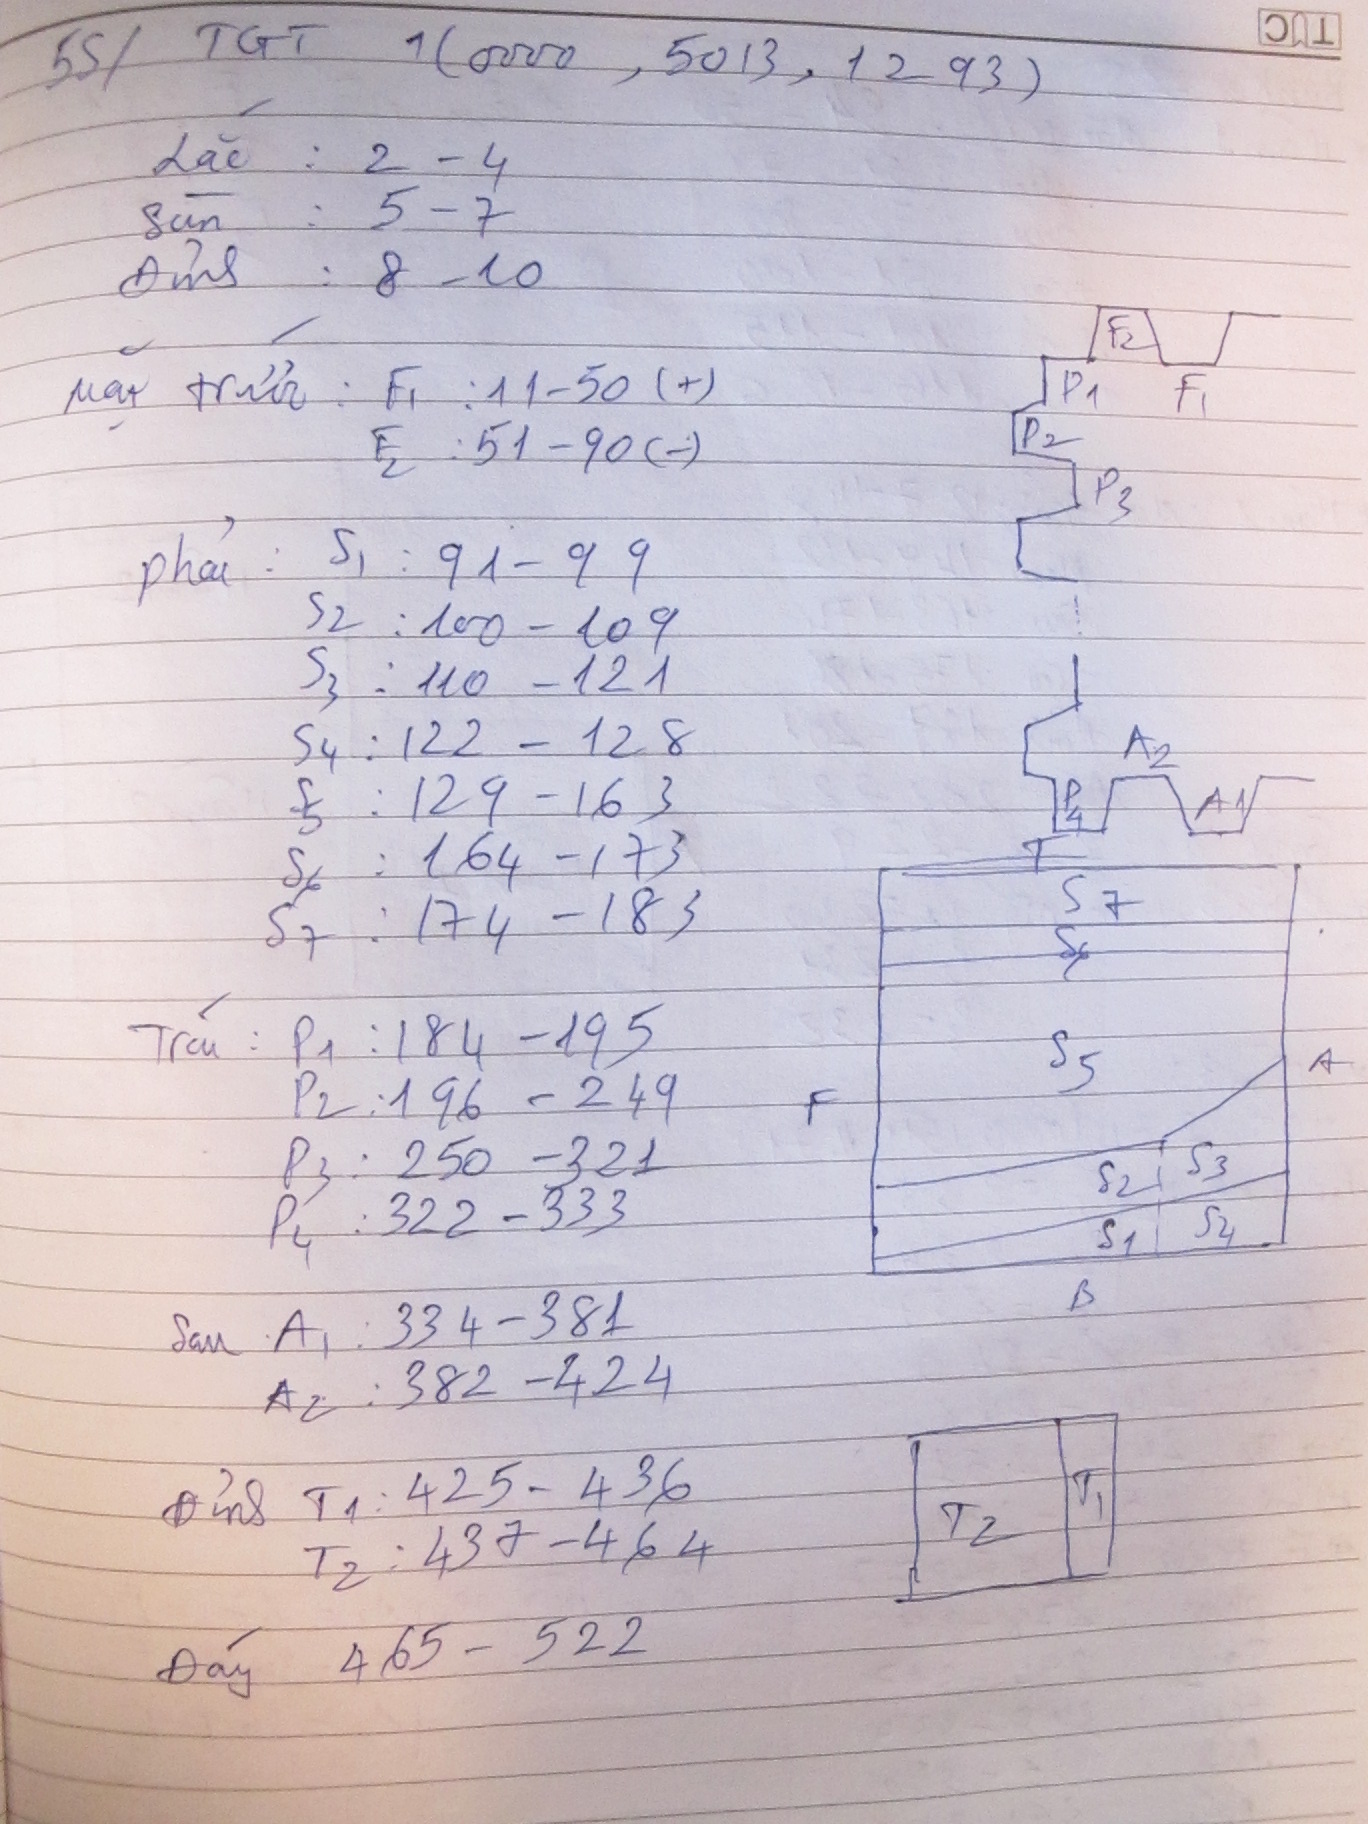 55/ TGT 1(0000, 5013, 1293)
Lắc : 2 - 4
Sàn : 5 - 7
Đỉnh : 8 - 10
Mặt trước : F1 : 11-50 (+)
F2 : 51-90 (-)
phải : S1 : 91 - 99
S2 : 100 - 109
S3 : 110 - 121
S4 : 122 - 128
S5 : 129 - 163
S6 : 164 - 173
S7 : 174 - 183
Trái : P1 : 184 - 195
P2 : 196 - 249
P3 : 250 - 321
P4 : 322 - 333
Sau A1 : 334 - 381
A2 : 382 - 424
Đỉnh T1 : 425 - 436
T2 : 437 - 464
Đáy 465 - 522
F2
P1 F1
P2
P3
A2
P4 A1
T
S7
S6
S5
F A
S2 S3
S1 S4
B
T2 T1